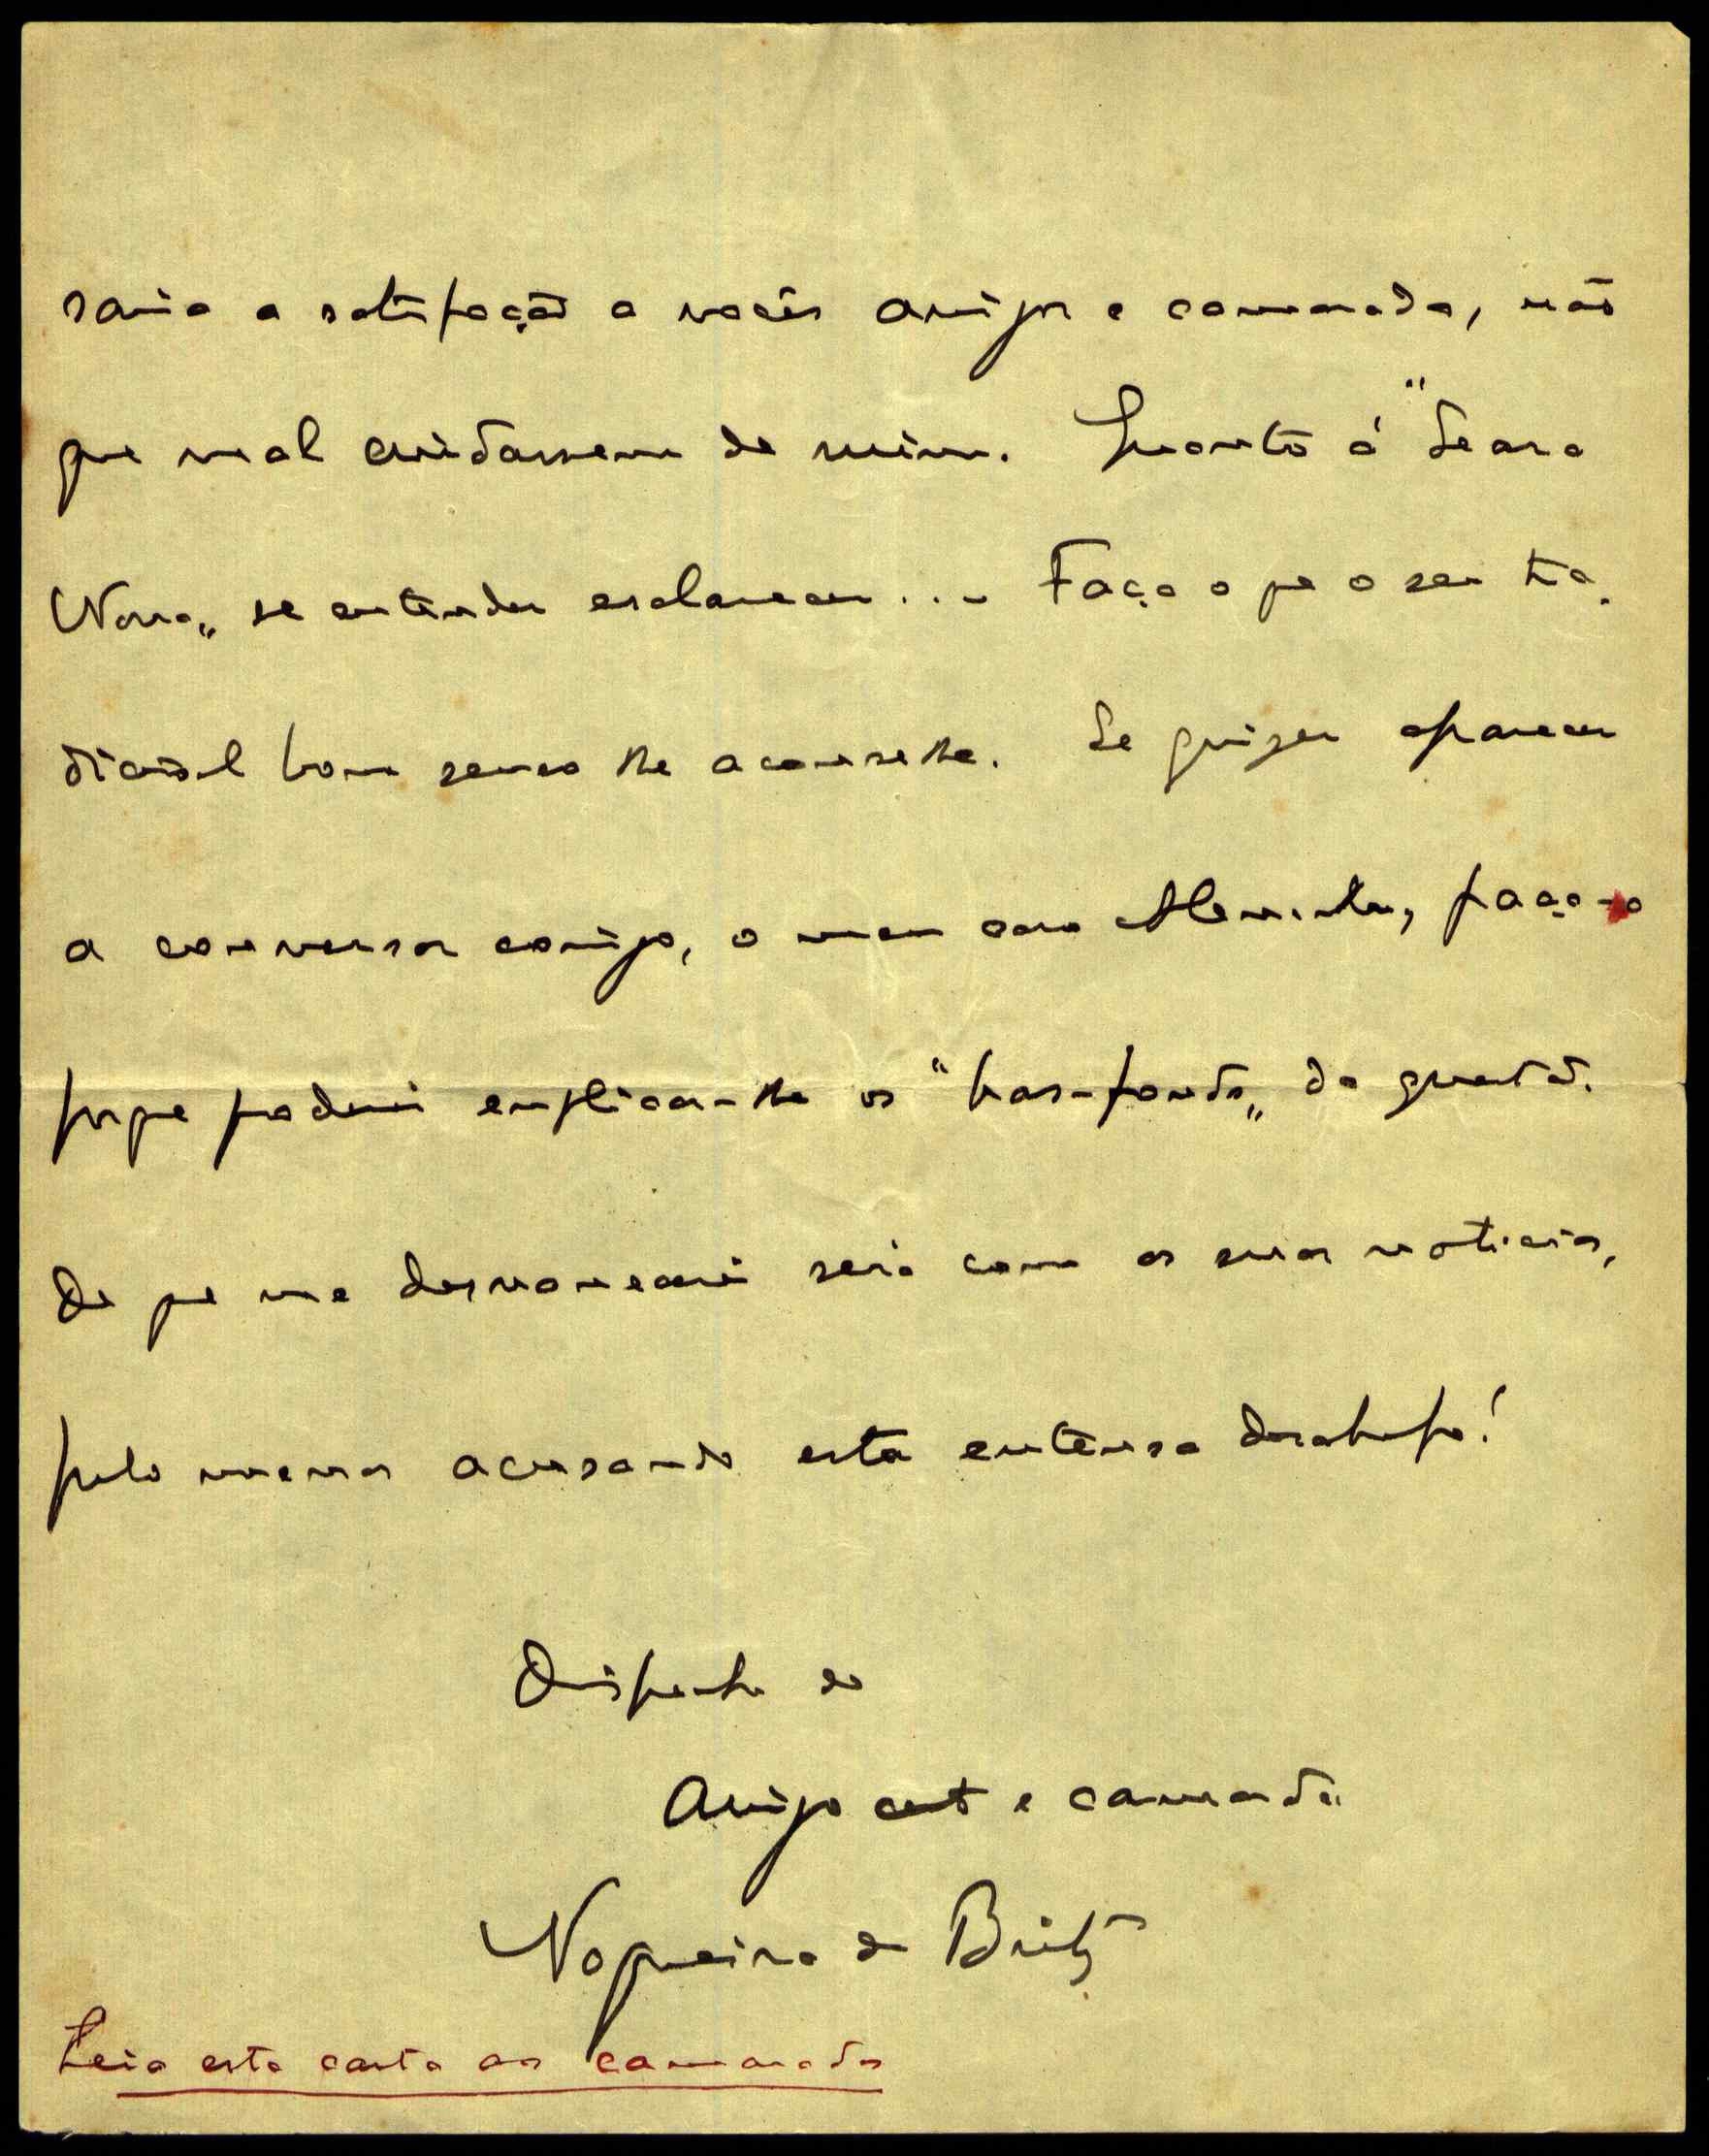 saria a satisfação a vocês amigos e camaradas, não
que mal cuidassem de mim. Quanto á "Seara
Nova„ se entender esclarecer... Faça o que o seu tra-
dicional bom senso lhe aconselhe. Se quizer aparecer
a conversar comigo, o meu caro Alexandre, faça-o
porque poderei explicar-lhe os "bas-fonds„ da questão.
De que me desvanecerei será com as suas noticias,
pelo menos acusando esta extensa desabafo!
Disponha do
Amigo certo e camarada
Nogueira de Brito
Leia esta carta aos camaradas